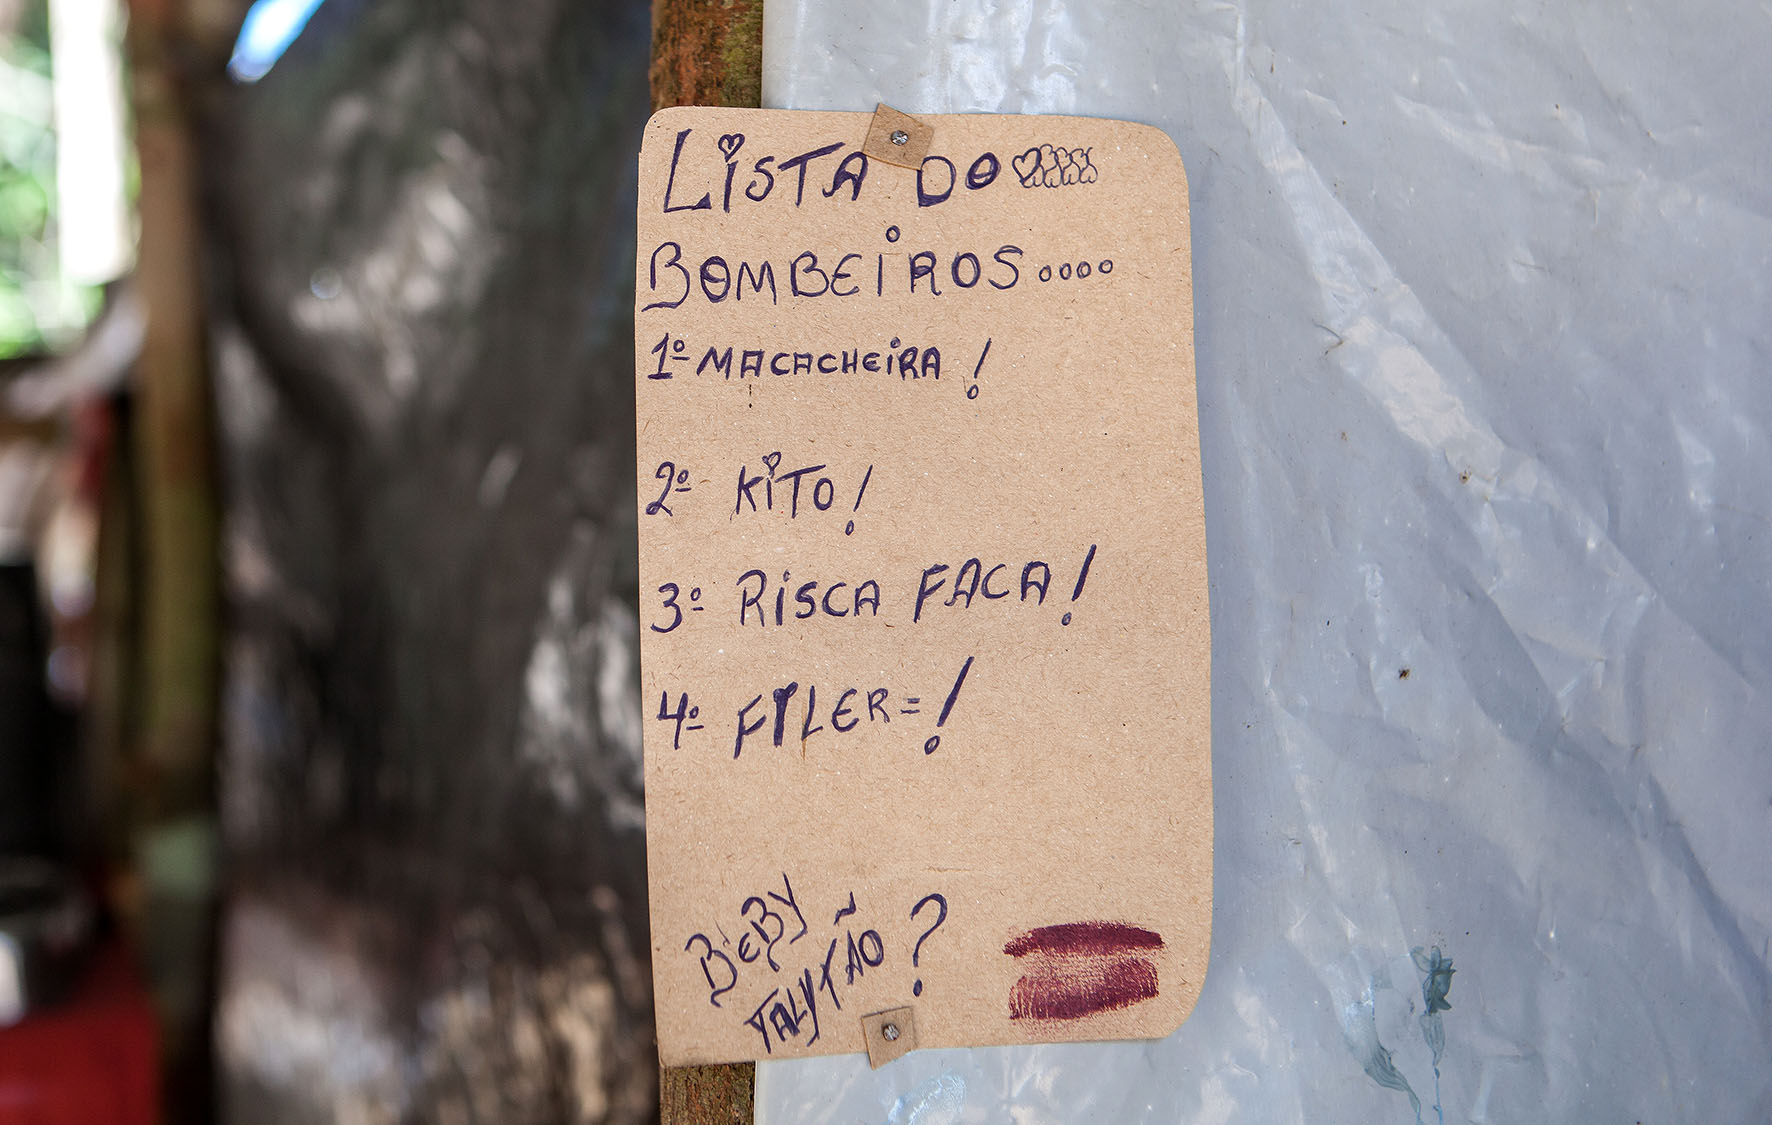 LiSTA DO
BOMBEiROS....
1º MACACHEiRA!
2º KiTO!
3º RiSCA FACA!
4º FILER=!
BEBY
TALYTÃO?